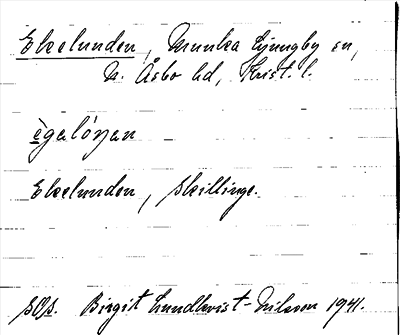 Ekelunden, Munka Ljungby sn,
N. Åsbo hd, Krist. l.
ègelón̡an
Ekelunden, skillinge.
SOS. Birgit Lundkvist-Nilsson 1941.